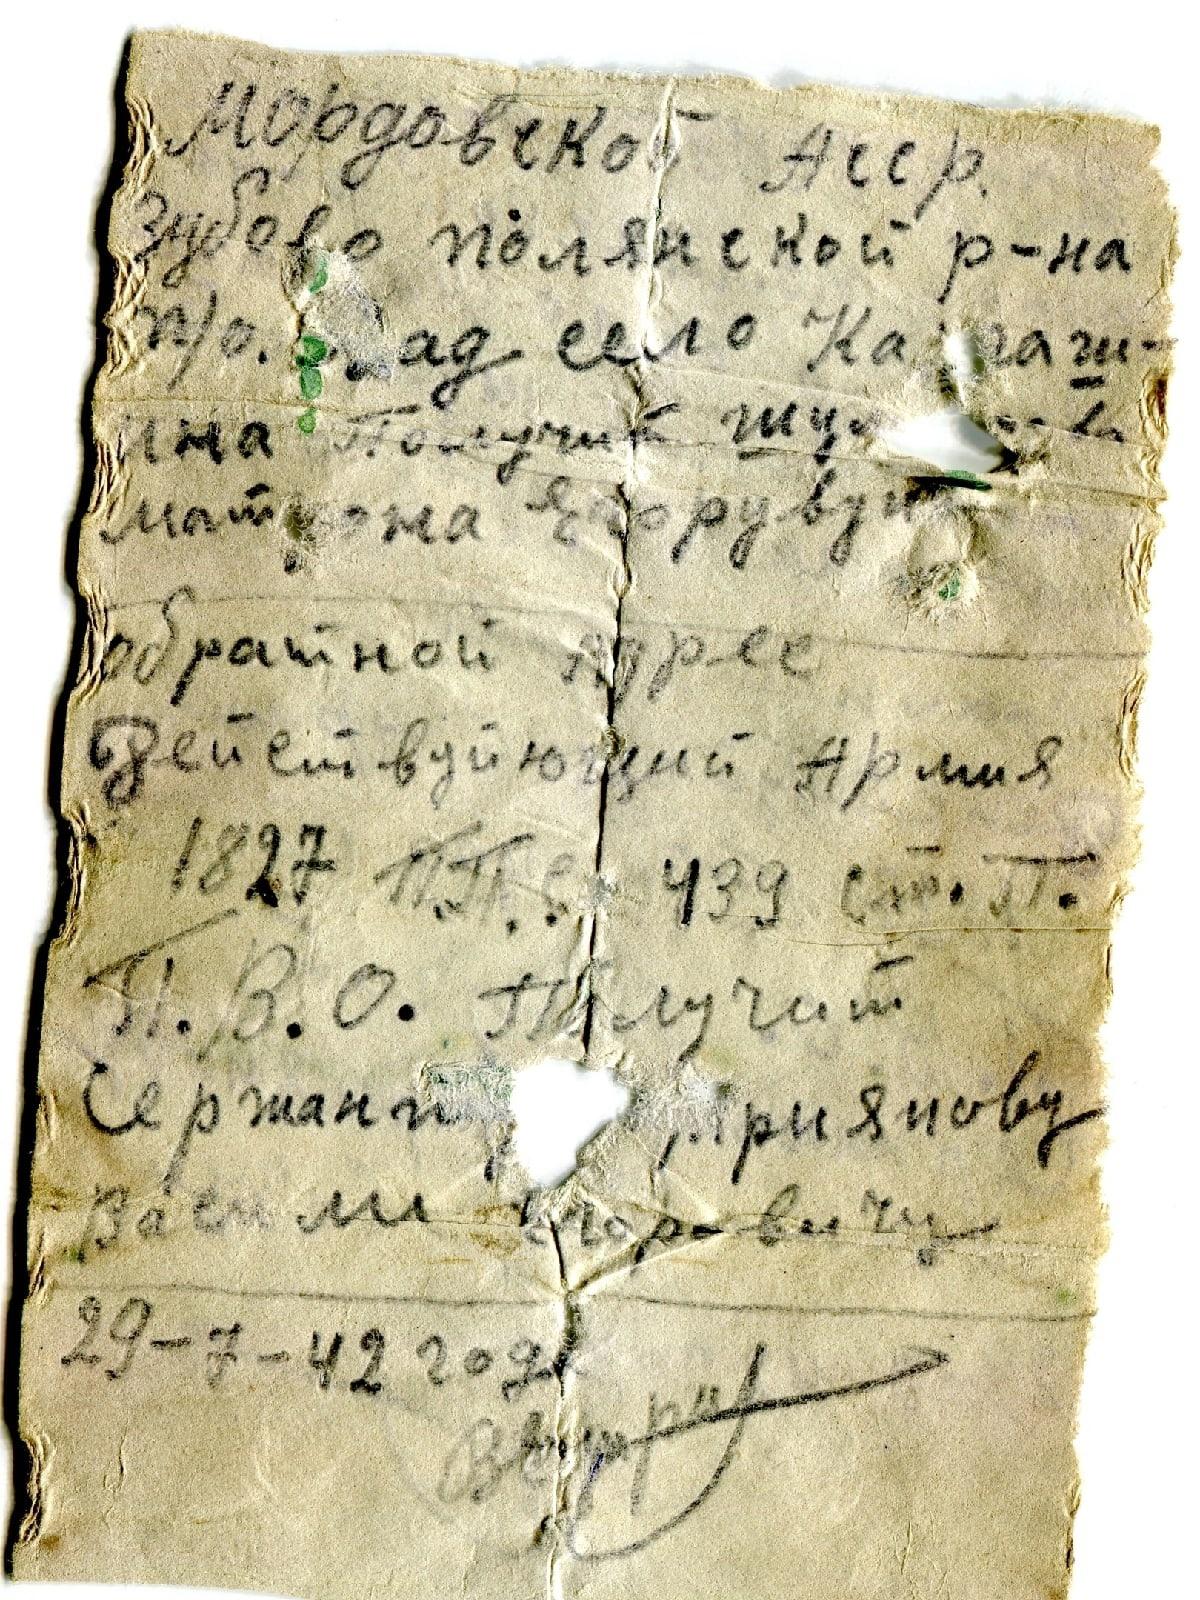 Мордовской Асср.
Зубово полянской р-на
п/о. село
ина Получит
матрона
обратной адрес
Действуйющий Армия
1827 П.П.С. 439 ст. П.
П. В. О. Получит
Сержанту
Васили Егоровичу
29-7-42 года